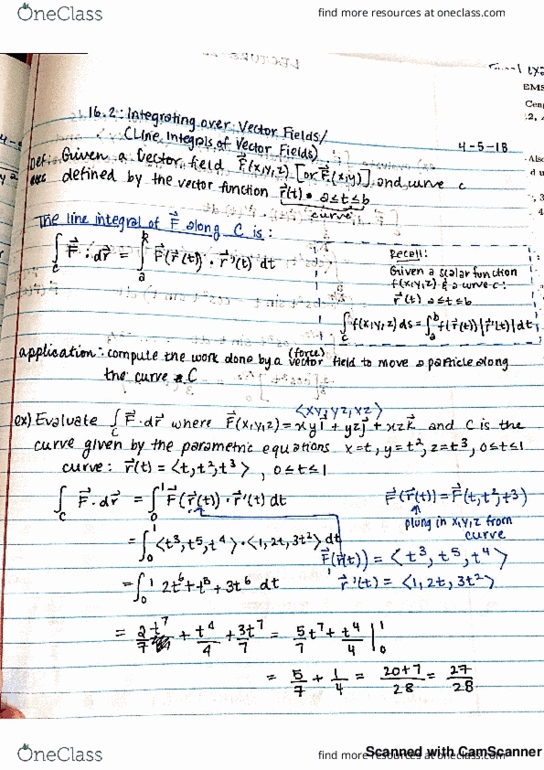 OneClass
find more resources at oneclass.com
EMS
16.2: Integrating over Vector Fields/
(Line Integrals of Vector Fields)
4-5-18
Def: Given a vector field F⃗(x,y,z) [or F⃗(x,y)] and curve c
defined by the vector function r⃗(t) · a≤t≤b
curve
The line integral of F⃗ along C is:
∫_C F⃗ · dr⃗ = ∫_a^b F⃗(r⃗(t)) · r⃗'(t) dt
Recall:
Given a scalar function
f(x,y,z) & a curve c:
r⃗(t) a≤t≤b
∫_C f(x,y,z) ds = ∫_a^b f(r⃗(t)) |r⃗'(t)| dt
application: compute the work done by a (force) vector field to move a particle along
the curve C
<xy, yz, xz>
ex) Evaluate ∫_C F⃗ · dr⃗ where F⃗(x,y,z) = xy i⃗ + yz j⃗ + xz k⃗ and C is the
curve given by the parametric equations x=t, y=t², z=t³, 0≤t≤1
curve: r⃗(t) = <t, t², t³>, 0≤t≤1
∫_C F⃗ · dr⃗ = ∫_0^1 F⃗(r⃗(t)) · r⃗'(t) dt
F⃗(r⃗(t)) = F⃗(t, t², t3)
plung in x,y,z from
curve
= ∫_0^1 <t³, t⁵, t⁴> · <1, 2t, 3t²> dt
F⃗(r⃗(t)) = <t³, t⁵, t⁴>
= ∫_0^1 2t⁶ + t³ + 3t⁶ dt
r⃗'(t) = <1, 2t, 3t²>
= 2t⁷/7 + t⁴/4 + 3t⁷/7 = 5t⁷/7 + t⁴/4 |_0^1
= 5/7 + 1/4 = 20+7/28 = 27/28
Scanned with CamScanner
OneClass
find more resources at oneclass.com